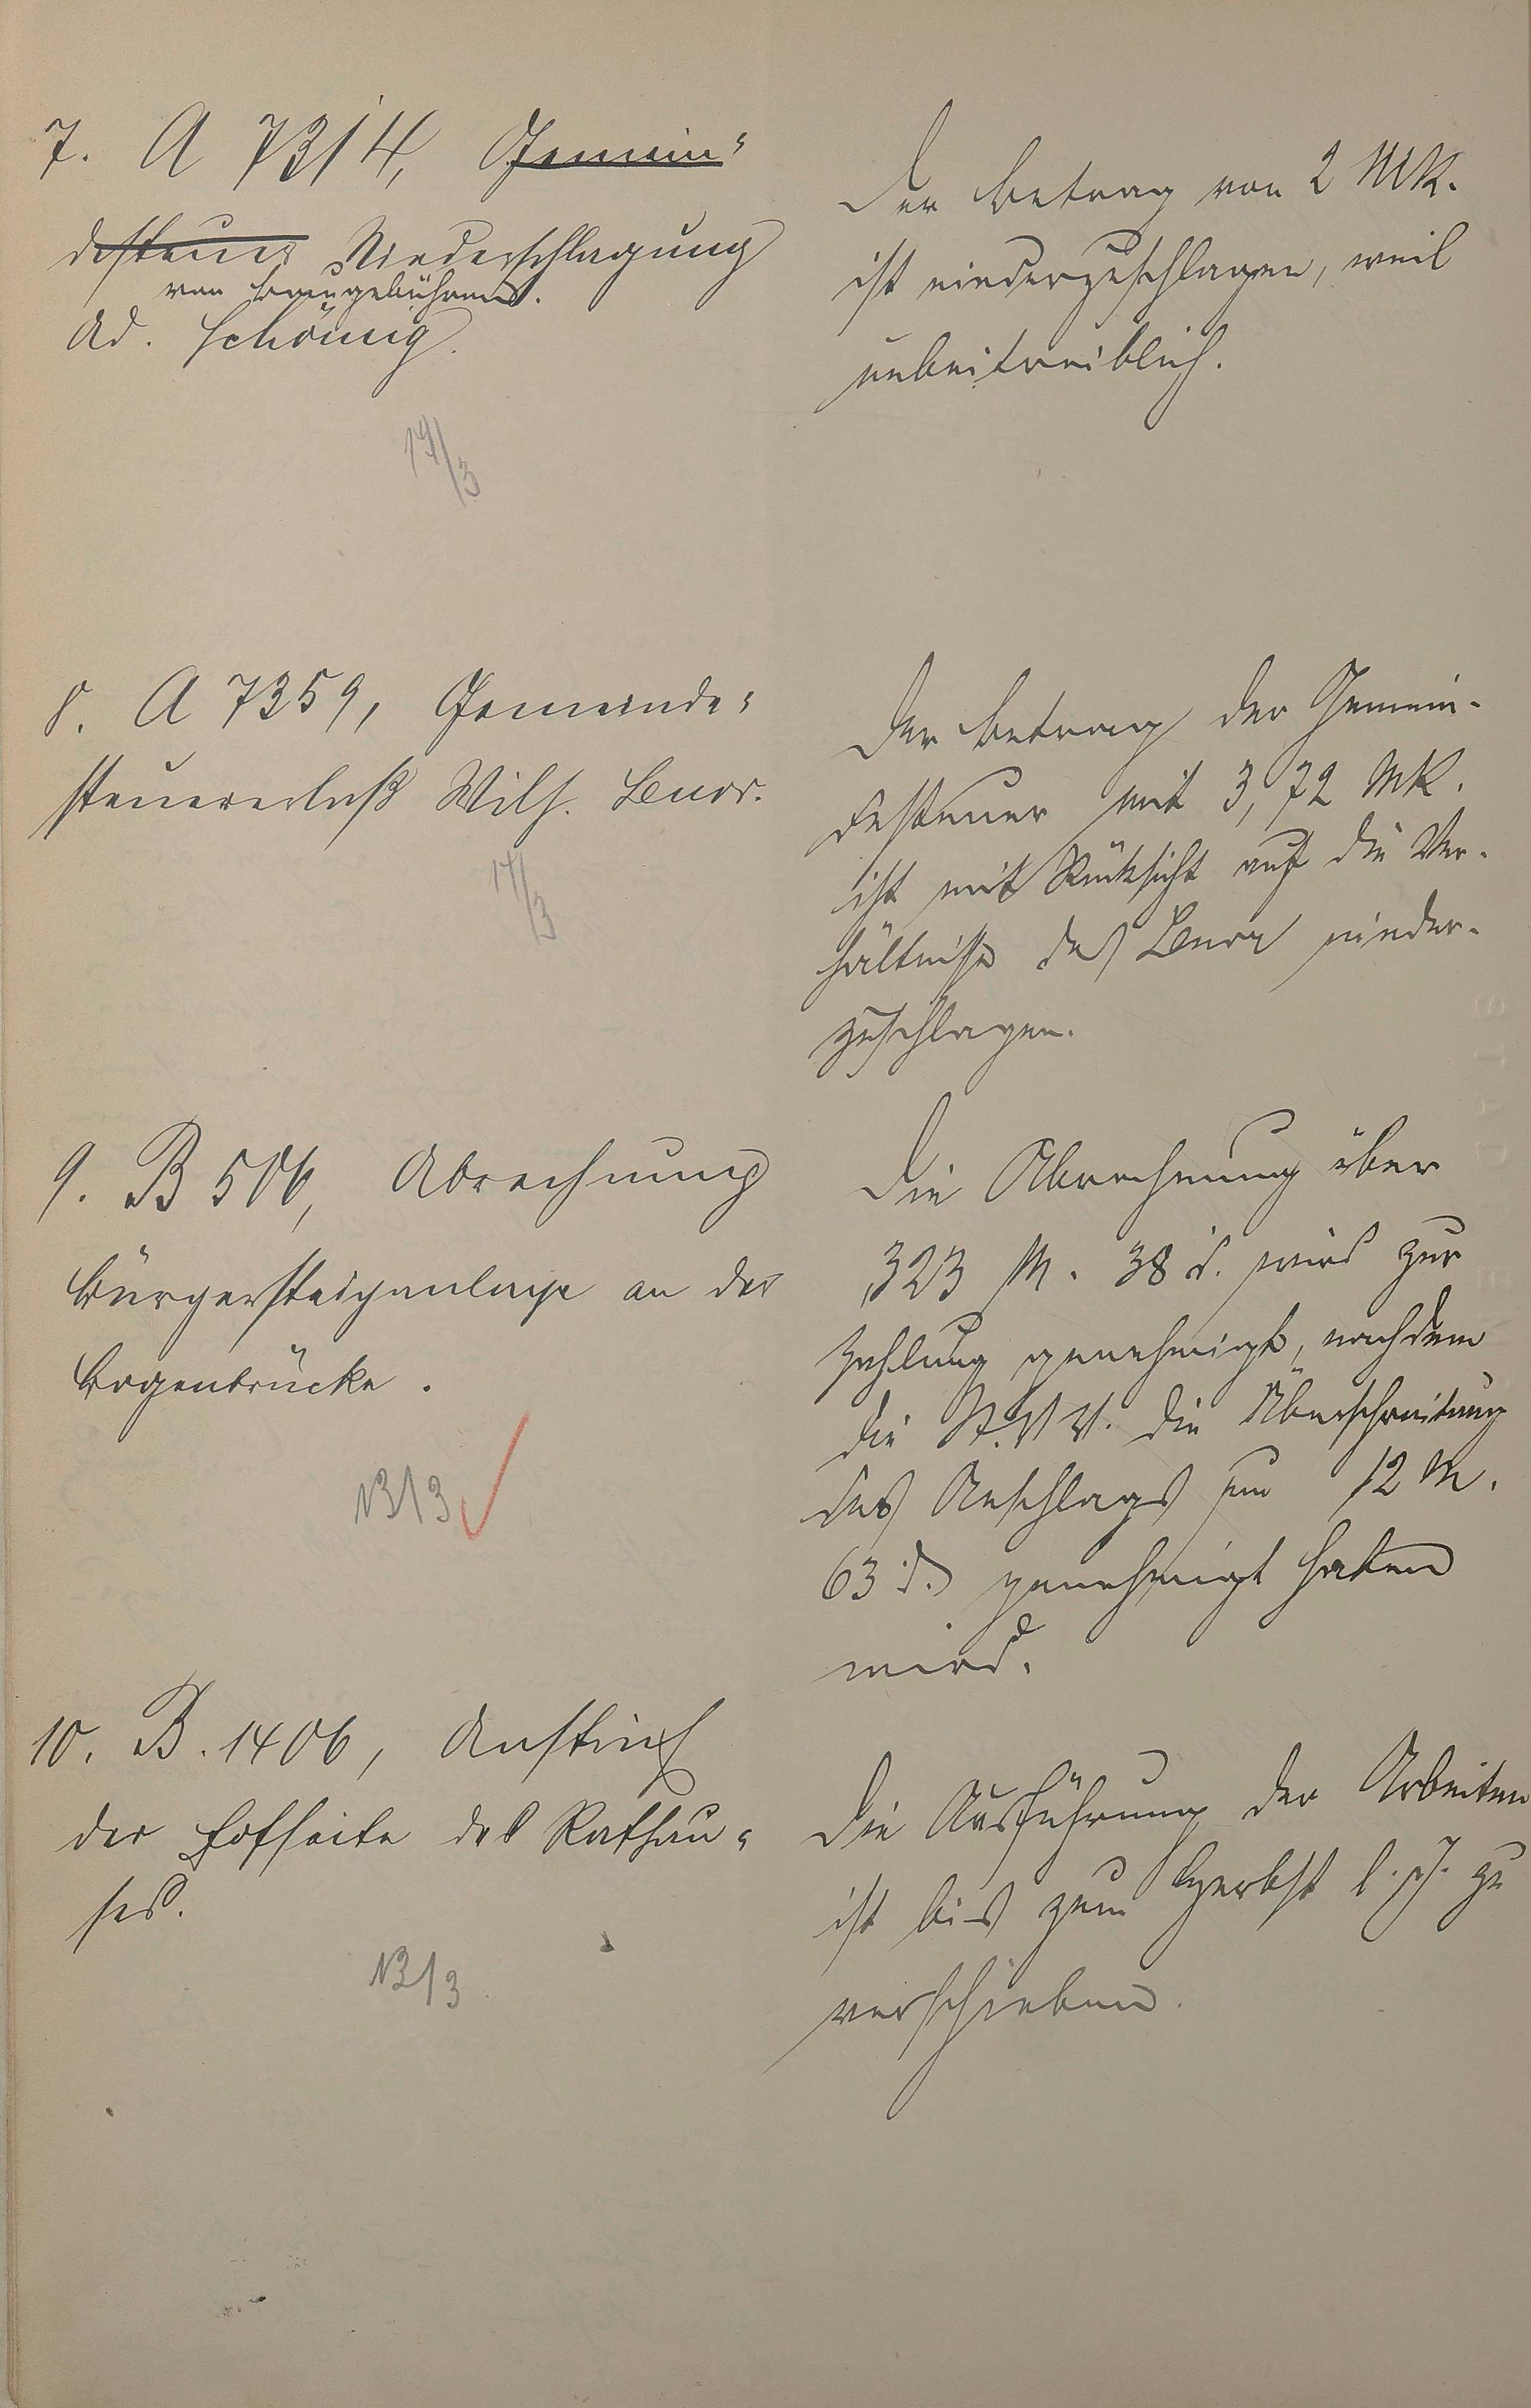 7. A 7314, Gemein-
desteuer Niederschlagung
von Baugebühren.
Ad. Schönig.
19/3
Der Betrag von 2 MK.
ist niederzuschlagen, weil
unbeitreiblich.
8. A 7359, Gemeinde-
steuererlaß Wilh.
17/3
Der Betrag der Gemein-
desteuer mit 3,72 MK.
ist mit Rücksicht auf die Ver-
hältnisse des nieder-
zuschlagen.
9. B 506, Abrechnung
Bürgersteiganlage an der
Bogenbrücke.
13/3
Die Abrechnung über
323 M. 38 d. wird zur
Zahlung genehmigt, nachdem
die St.V.V. die Überschreitung
des Anschlags um 12 M.
63 d. genehmigt haben
wird.
10. B. 1406, Anstrich
der Hofseite des Rathau-
ses.
13/3
Die Ausführung der Arbeiten
ist bis zum Herbst l. J. zu
verschieben.